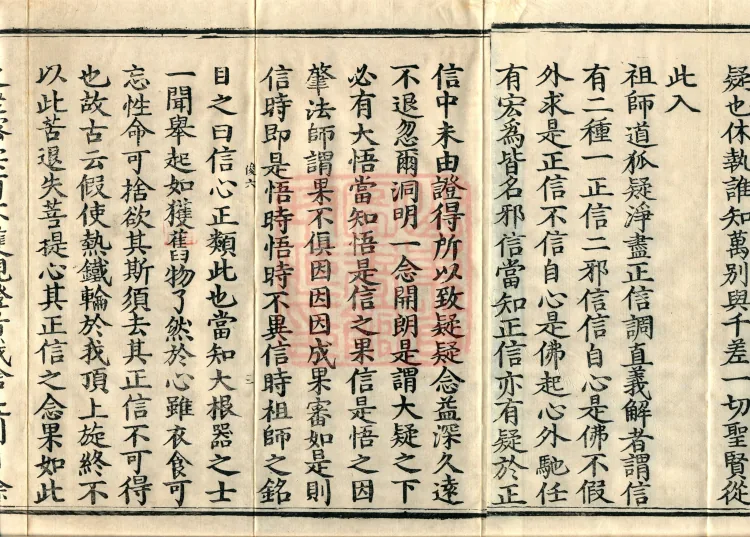 疑也休執誰知萬別與千差一切聖賢從
此入
祖師道狐疑淨盡正信調直義解者謂信
有二種一正信二邪信信自心是佛不假
外求是正信不信自心是佛起心外馳任
有宏為皆名邪信當知正信亦有疑於正
信中未由證得所以致疑疑念益深久遠
不退忽爾洞明一念開朗是謂大疑之下
必有大悟當知悟是信之果信是悟之因
肇法師謂果不俱因因因成果審如是則
信時即是悟時悟時不異信時祖師之銘
俊六
二
目之曰信心正類此也當知大根器之士
一聞舉起如獲舊物了然於心雖衣食可
忘性命可捨欲其斯須去其正信不可得
也故古云假使熱鐵輪於我頂上旋終不
以此苦退失菩提心其正信之念果如此